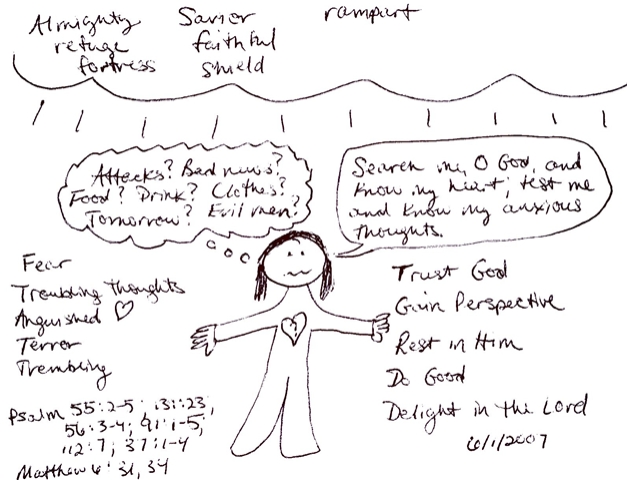 Almighty
refuge
fortress
Savior
faithful
shield
rampart
Attacks? Bad news?
Food? Drink? Clothes?
Tomorrow? Evil men?
Search me, O God, and
know my heart; test me
and know my anxious
thoughts.
Fear
Troubling thoughts
Anguished ♡
Terror
Trembling
Psalm 55:2-5; 131:23;
56:3-4; 91:1-5;
112:7; 37:1-4
Matthew 6:31, 34
Trust God
Gain Perspective
Rest in Him
Do Good
Delight in the Lord
6/1/2007